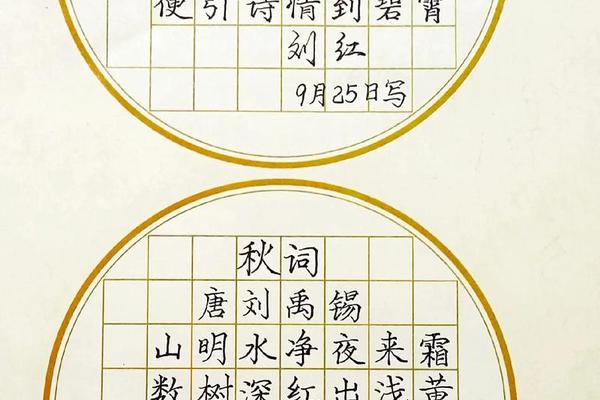 便引诗情到碧霄
刘红
9月25日写
秋词
唐刘禹锡
山明水净夜来霜
数树深红出浅黄